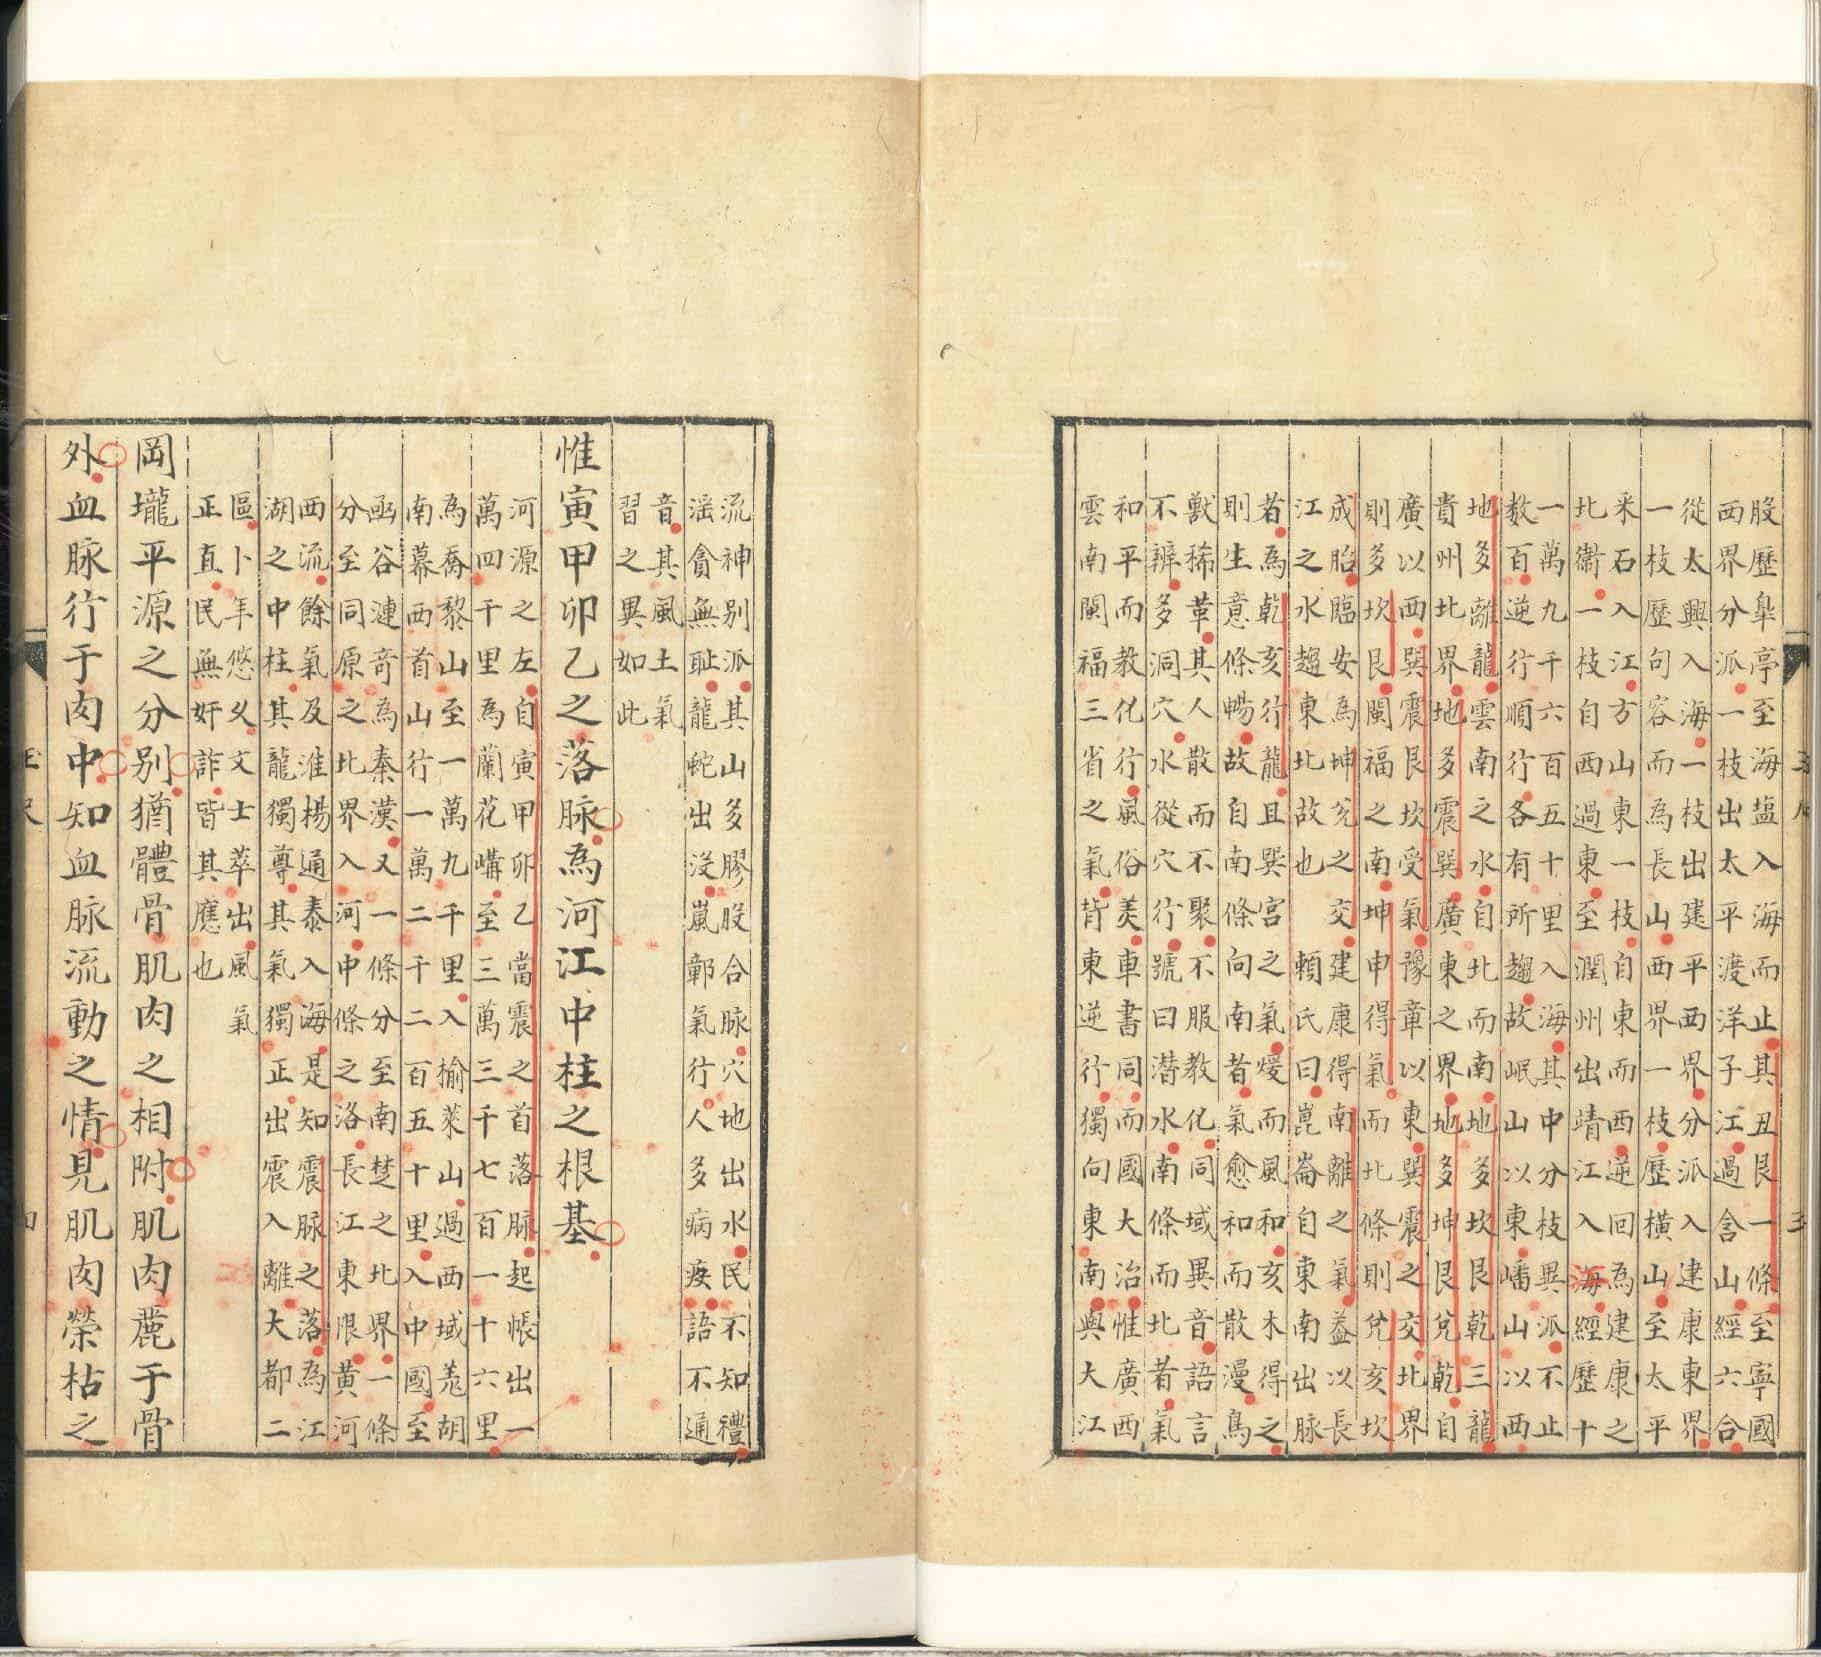 股歷皐亭至海塩入海而止其丑艮一條至寧國
西界分派一枝出太平渡洋子江過含山經六合
從太興入海一枝出建平西界分派入建康東界
一枝歷句容而為長山西界一枝歷橫山至太平
采石入江方山東一枝自東而西逆回為建康之
北衞一枝自西過東至潤州出靖江入海經歷十
一萬九千六百五十里入海其中分枝異派不止
数百逆行順行各有所趨故岷山以東嶓山以西
地多離龍雲南之水自北而南地多坎艮乾三龍
貴州北界地多震巽廣東之界地多坤艮兌乾自
廣以西巽震艮坎受氣豫章以東巽震之交北界
則多坎艮閩福之南坤申得氣而北條則兌亥坎
成胎臨安為坤兌之交建康得南離之氣益以長
江之水趨東北故也 賴氏曰崑崙自東南出脉
者為乾亥行龍且巽宮之氣煖而風和亥木得之
則生意條暢故自南條向南者氣愈和而散漫鳥
獸稀革其人散而不聚不服教化同域異音語言
不辨多洞穴水從穴行號曰潜水南條而北者氣
和平而教化行風俗美車書同而國大治惟廣西
雲南閩福三省之氣背東逆行獨向東南與大江
流神别派其山多膠股合脉穴地出水民不知禮
滛貪無耻龍蛇出沒嵐鄣氣行人多病疾語不通
音其風土氣
習之異如此
惟寅甲卯乙之落脉為河江中柱之根基
河源之左自寅甲卯乙當震之首落脉起帳出一
萬四千里為蘭花嶙至三萬三千七百一十六里
為喬黎山至一萬九千里入榆萊山過西域羗胡
南幕西首山行一萬二千二百五十里入中國至
函谷漣奇為秦漢又一條分至南楚之北界一條
分至同原之北界入河中條之洛長江東限黄河
西流餘氣及淮楊通泰入海是知震脉之落為江
湖之中柱其龍獨尊其氣獨正出震入離大都二
區卜年悠乆文士萃出風氣
正直民無奸詐皆其應也
岡壠平源之分别猶體骨肌肉之相附肌肉麗于骨
外血脉行于肉中知血脉流動之情見肌肉榮枯之